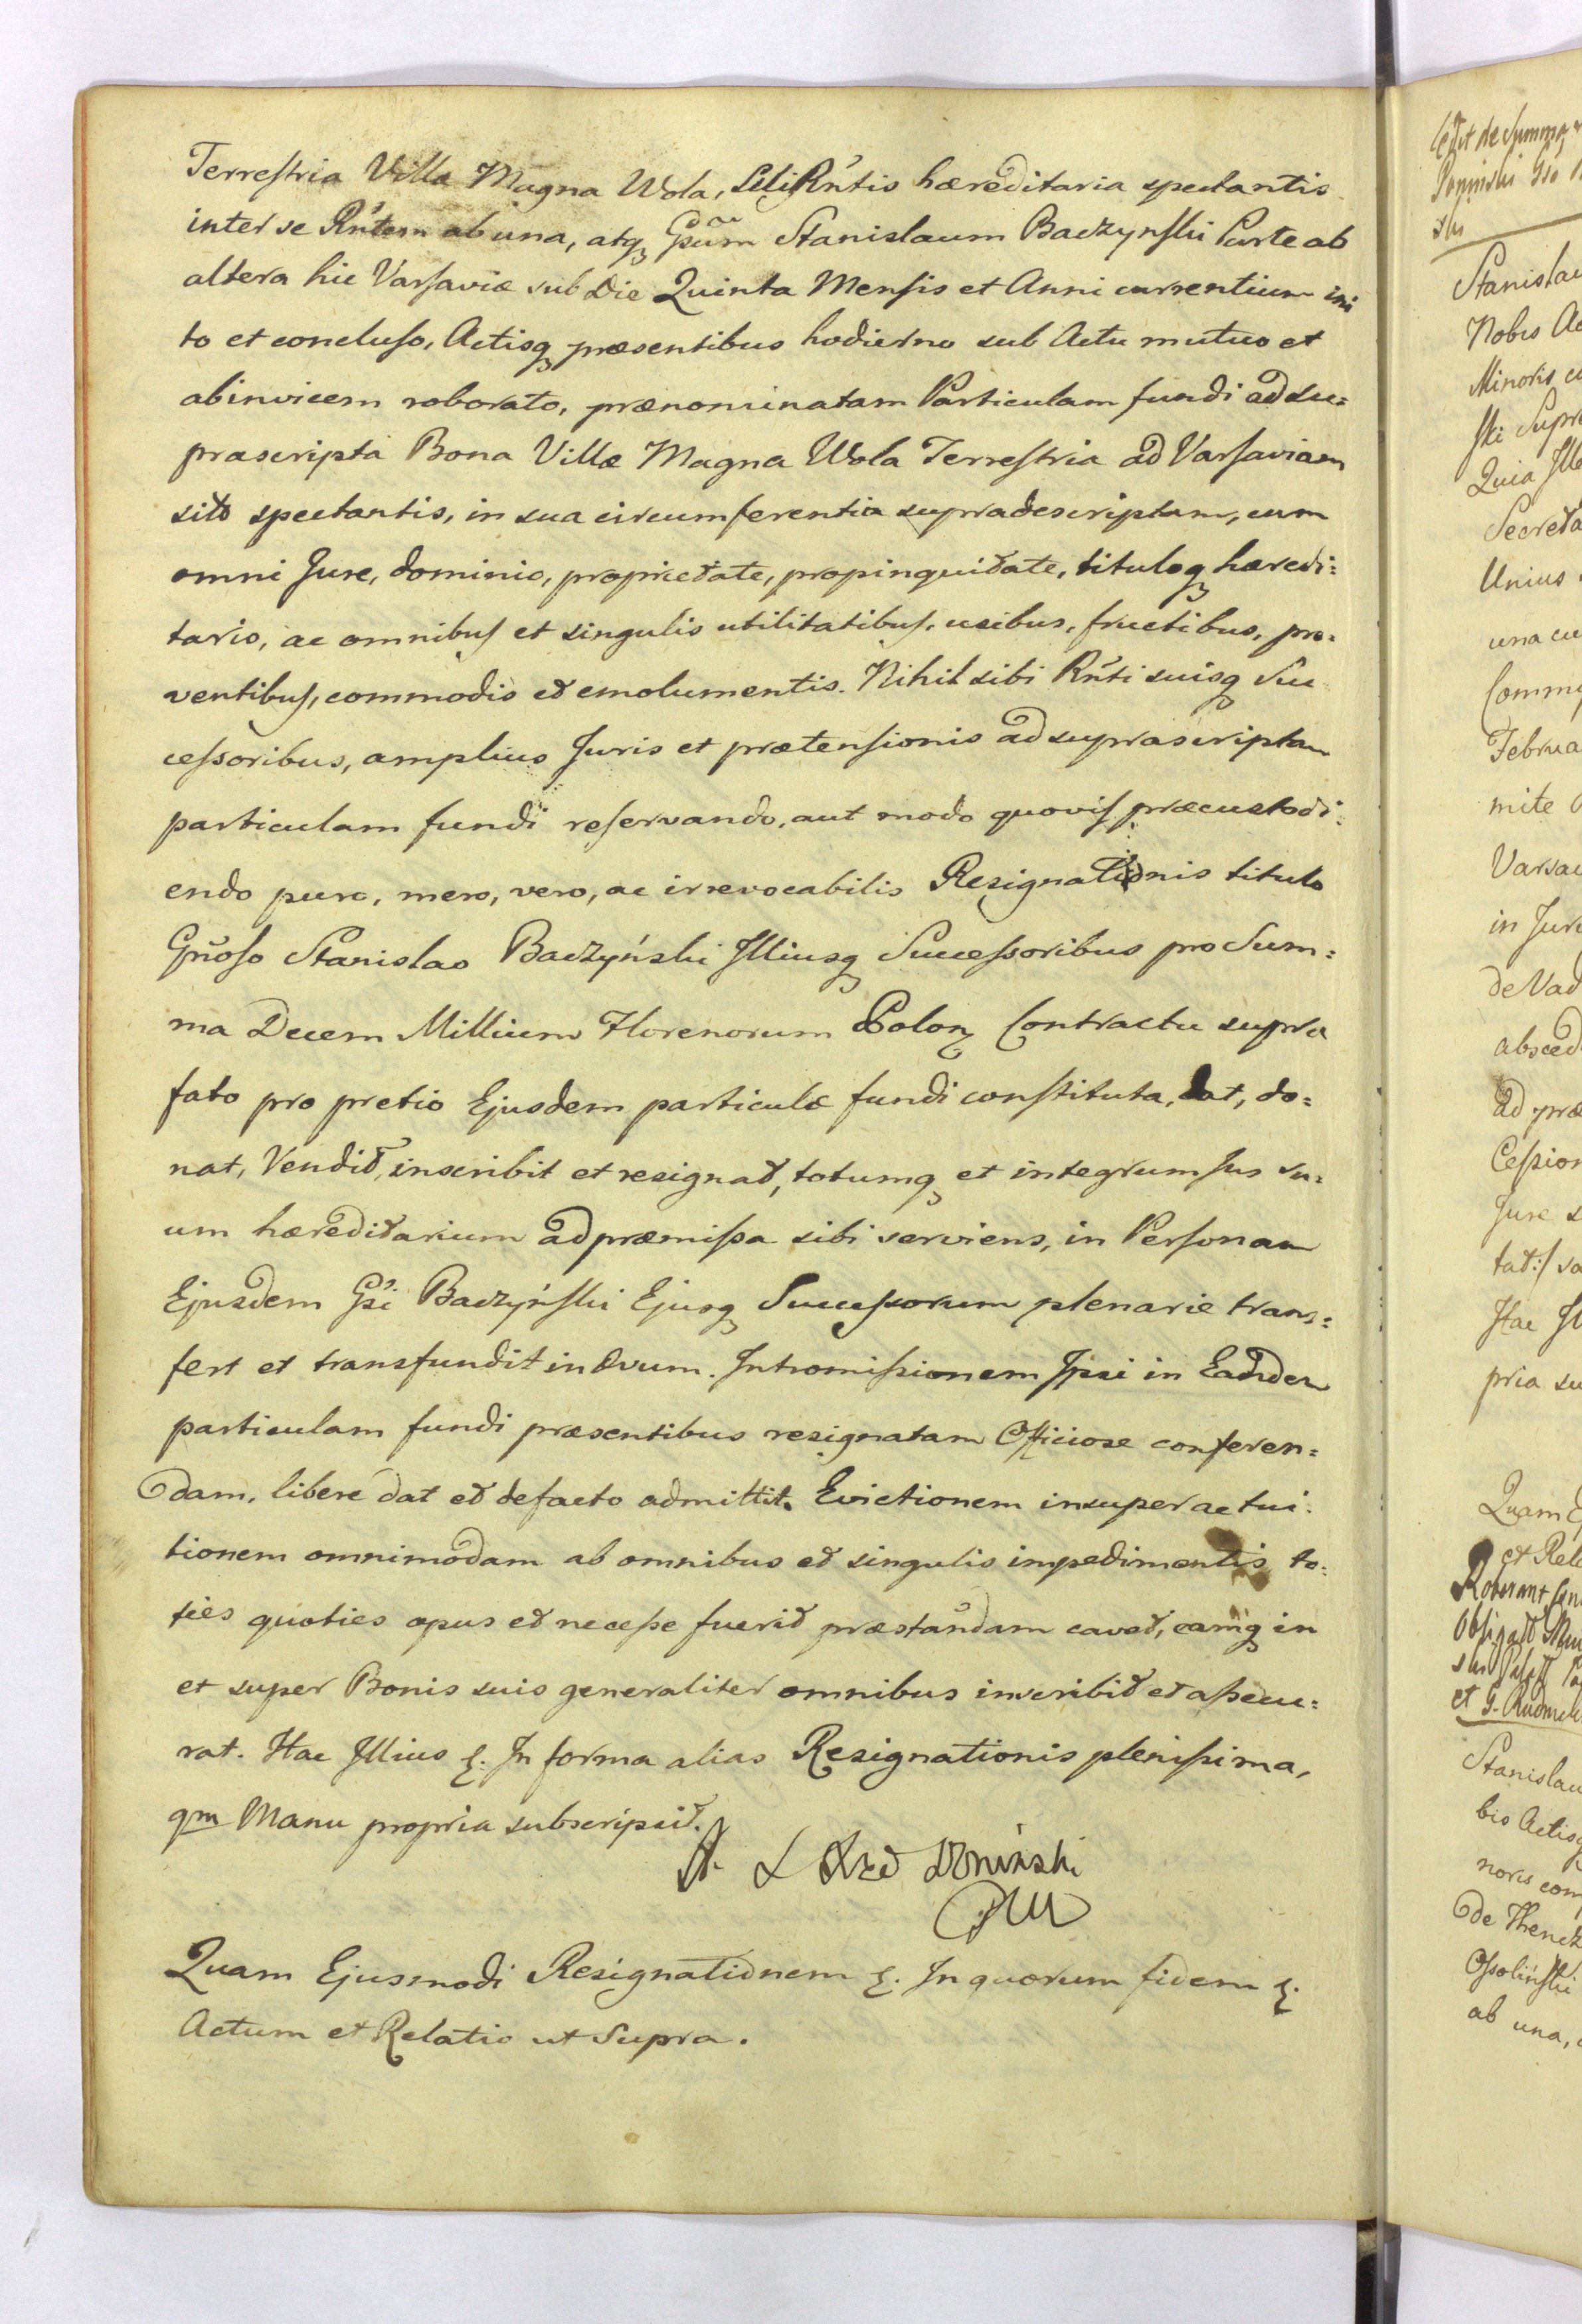 Terrestria Villa Magna Wola, Sui Rñtis hæreditaria spectantis
inter se Rñtem ab una, atq Gsum Stanislaum Baczynski Parte ab
altera hic Varsaviæ sub Die Quinta Mensis et Anni currentium ini
to et concluso, Actisq præsentibus hodierno sub Actu mutuo et
abinvicem roborato, prænominatam Particulam fundi ad su=
prascripta Bona Villæ Magna Wola Terrestria ad Varsaviam
sito spectantis, in sua circumferentia supradescriptam, cum
omni Jure, dominio, proprietate, propinquitate, tituloq hæredi=
tario, ac omnibus et singulis utilitatibus, usibus, fructibus, pro=
ventibus, commodis et emolumentis. Nihil sibi Rñti suisq Suc
cessoribus, amplius Juris et prætensionis ad suprascriptam
particulam fundi reservando, aut modo quovis præcustodi=
endo puro, mero, vero, ac irrevocabilis Resignationis titulo
Gñoso Stanislao Baczyński Illiusq Successoribus pro Sum=
ma Decem Millium Florenorum Polon Contractu supra
fato pro pretio Ejusdem particulæ fundi constituta, dat, do=
nat, Vendit, inscribit et resignat, totumq et integrum Jus su=
um hæreditarium ad præmissa sibi serviens, in Personam
Ejusdem Gsi Baczyński Ejusq Successorum plenarie trans=
fert et transfundit in ævum. Intromissionem Ipsi in Eadem
particulam fundi præsentibus resignatam Officiose conferen=
dam, libere dat et defacto admittit. Evictionem insuper ac tui=
tionem omnimodam ab omnibus et singulis impedimentis to=
ties quoties opus et necesse fuerit præstandam cavet, eamq in
et super Bonis suis generaliter omnibus inscribit et assecu=
rat. Hac Illius &. In forma alias Resignationis plenissima,
qm Manu propria subscripsit.
Poninski
Quam Ejusmodi Resignationem &. In quorum fidem &.
Actum et Relatio ut Supra.
Stanislau
Nobis Ac
Minoris
ski Supra
Quia Ille
Secreta
Unius
una cu
Februa
mite
Varsav
in Jure
de Vad
absced
ad præ
Cession
Jure s
Hac Il
pria su
Quam E
et Rela
Stanislau
bis Actisq
noris com
de Thencz
Ossoliński
ab una,